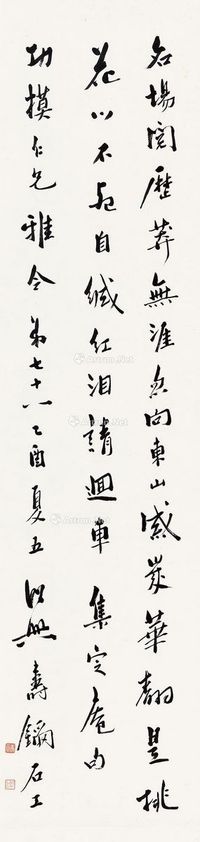 名場閱歷莽無涯忽向東山感歲華翻是桃
花心不死自緘紅淚請迴車 集定庵句
功模仁兄雅令 弟七十八乙酉夏五 壽鑈石工